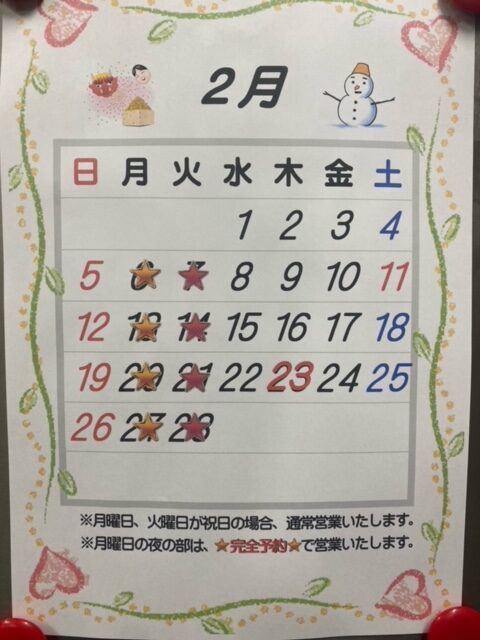 2月
日 月 火 水 木 金 土
1 2 3 4
5 6 7 8 9 10 11
12 13 14 15 16 17 18
19 20 21 22 23 24 25
26 27 28
※月曜日、火曜日が祝日の場合、通常営業いたします。
※月曜日の夜の部は、★完全予約★で営業いたします。